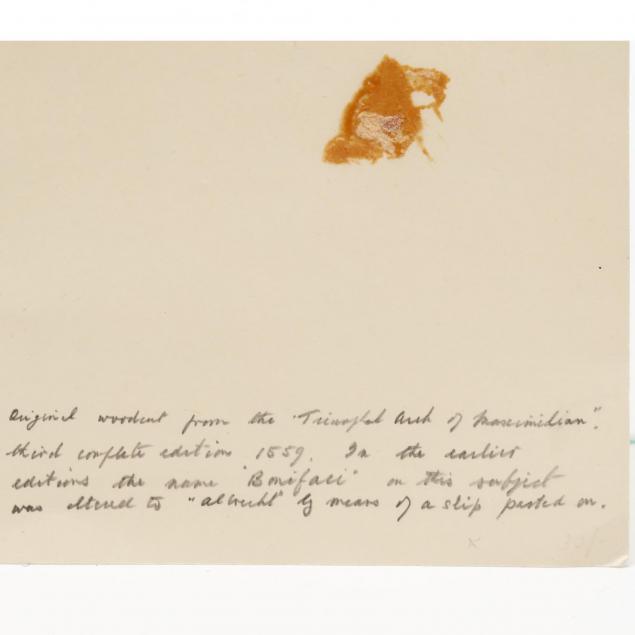 Original woodcut from the "Triumphal Arch of Maximidian".
third complete edition 1559. In the earlier
editions the name "Bonifaci" on this subject
was altered to "albrecht" by means of a slip pasted on.
x 30/-